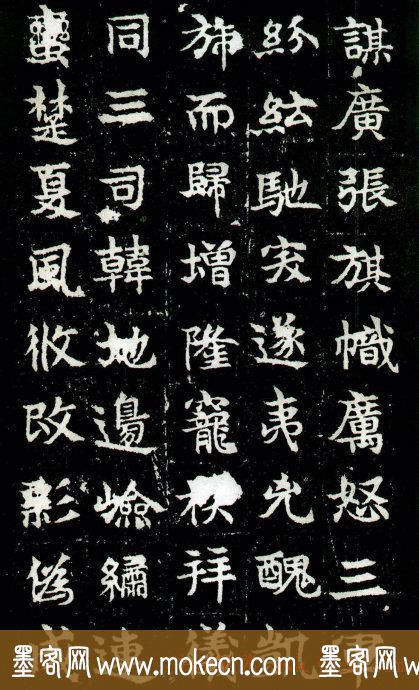 謀廣張旗幟厲怒三
紛紜馳突遂夷兇醜凱
旆而歸增隆寵秩拜儀
同三司韓地邊嶮繡連
蠻楚夏風攸改
僞
墨客网 www.mokecn.com 墨客网